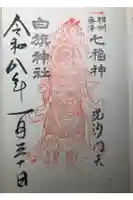 相州
藤沢
七福神
毘沙門天
白旗神社
令和八年
一月三十日